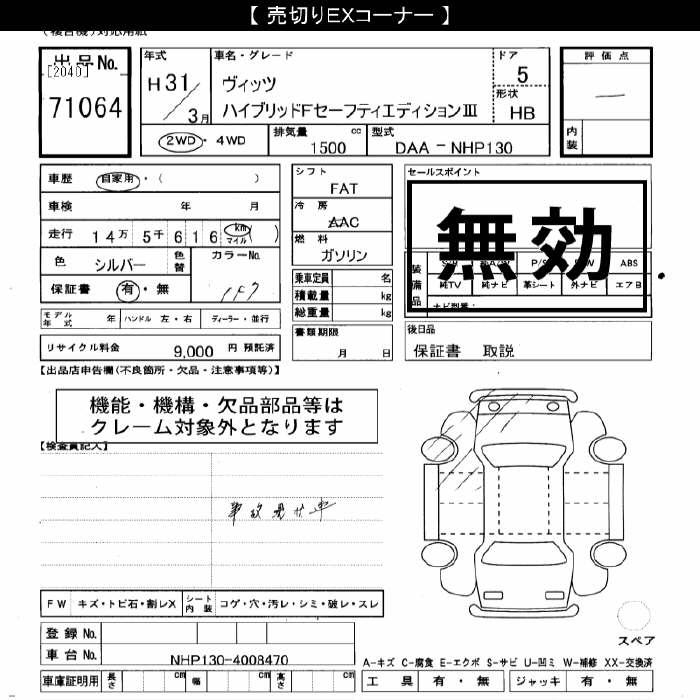 【 売切りEXコーナー 】
出品No.
[2040]
71064
年式
H 31/3月
車名・グレード
ヴィッツ
ハイブリッドFセーフティエディションIII
ドア
5
形状
HB
評価点
内装
2WD・4WD
排気量 cc
1500
型式
DAA-NHP130
車歴 自家用・( )
車検 年 月
走行 14万 5千616 km マイル ( )
色 シルバー 色替
カラーNo.
1F7
保証書 有・無
シフト
FAT
冷房
AAC
燃料
ガソリン
乗車定員 名
積載量 kg
総重量 kg
書類期限
月 日
セールスポイント
無効
装備品
ABS
純TV 純ナビ 革シート 外ナビ エアB
後日品
保証書 取説
モデル年式 年 ハンドル 左・右 ディーラー・並行
リサイクル料金 9,000 円 預託済
【出品店申告欄(不良箇所・欠品・注意事項等)】
機能・機構・欠品部品等は
クレーム対象外となります
【検査員記入】
事故現状車
FW キズ・トビ石・割レX シート内装 コゲ・穴・汚レ・シミ・破レ・スレ
登録No.
車台No. NHP130-4008470
車庫証明用 長さ cm 幅 cm 高さ cm
スペア
A-キズ C-腐食 E-エクボ S-サビ U-凹ミ W-補修 XX-交換済
工具 有・無 ジャッキ 有・無